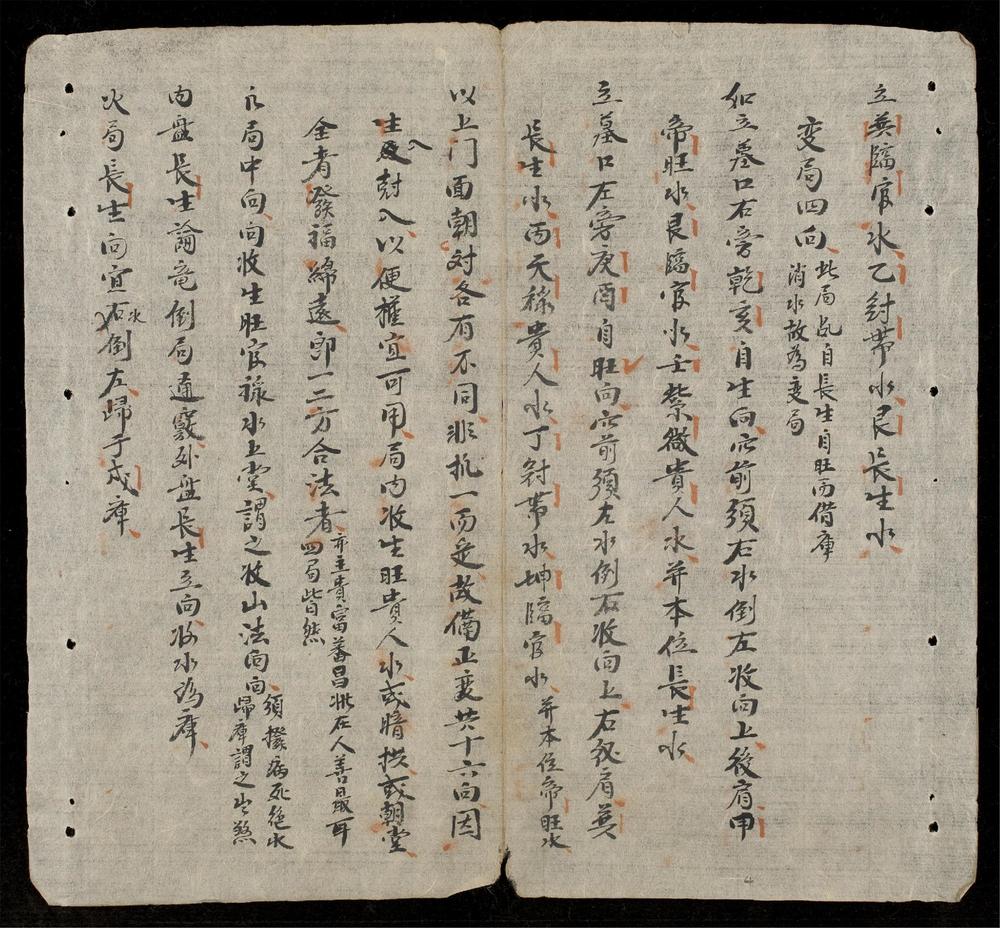 立巽臨官水乙冠帶水艮長生水
変局四向
此局凡自長生自旺而借庫
消水故為変局
如立墓口右旁乾亥自生向於前須右水倒左收向上後肩甲
帝旺水艮臨官水壬紫微貴人水并本位長生水
立墓口左旁庚酉自旺向於前須左水倒右收向上右後肩巽
長生水丙天祿貴人水丁冠帶水坤臨官水
并本位帝旺水
以上门面朝对各有不同非执一而定故備正変共十六向因
生入尅入以便權宜可用局内收生旺貴人水或暗拱或朝堂
全者發福綿遠即一二方合法者
亦主貴富蕃昌此在人善最耳
四局皆然
凡局中向向收生旺官祿水上堂謂之收山法向向
須撥病死絕水
歸庫謂之出煞
内盤長生論竜倒局通竅外盤長生立向收水為庫
火局長生向宜右水倒左歸于戌庫